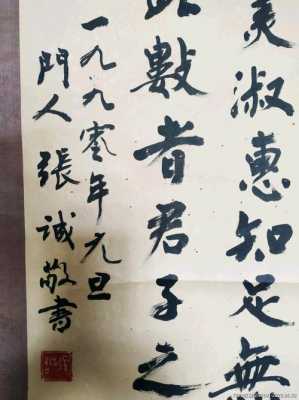 淑惠知足無
此數者君子之
一九九零年元旦
門人張誠敬書